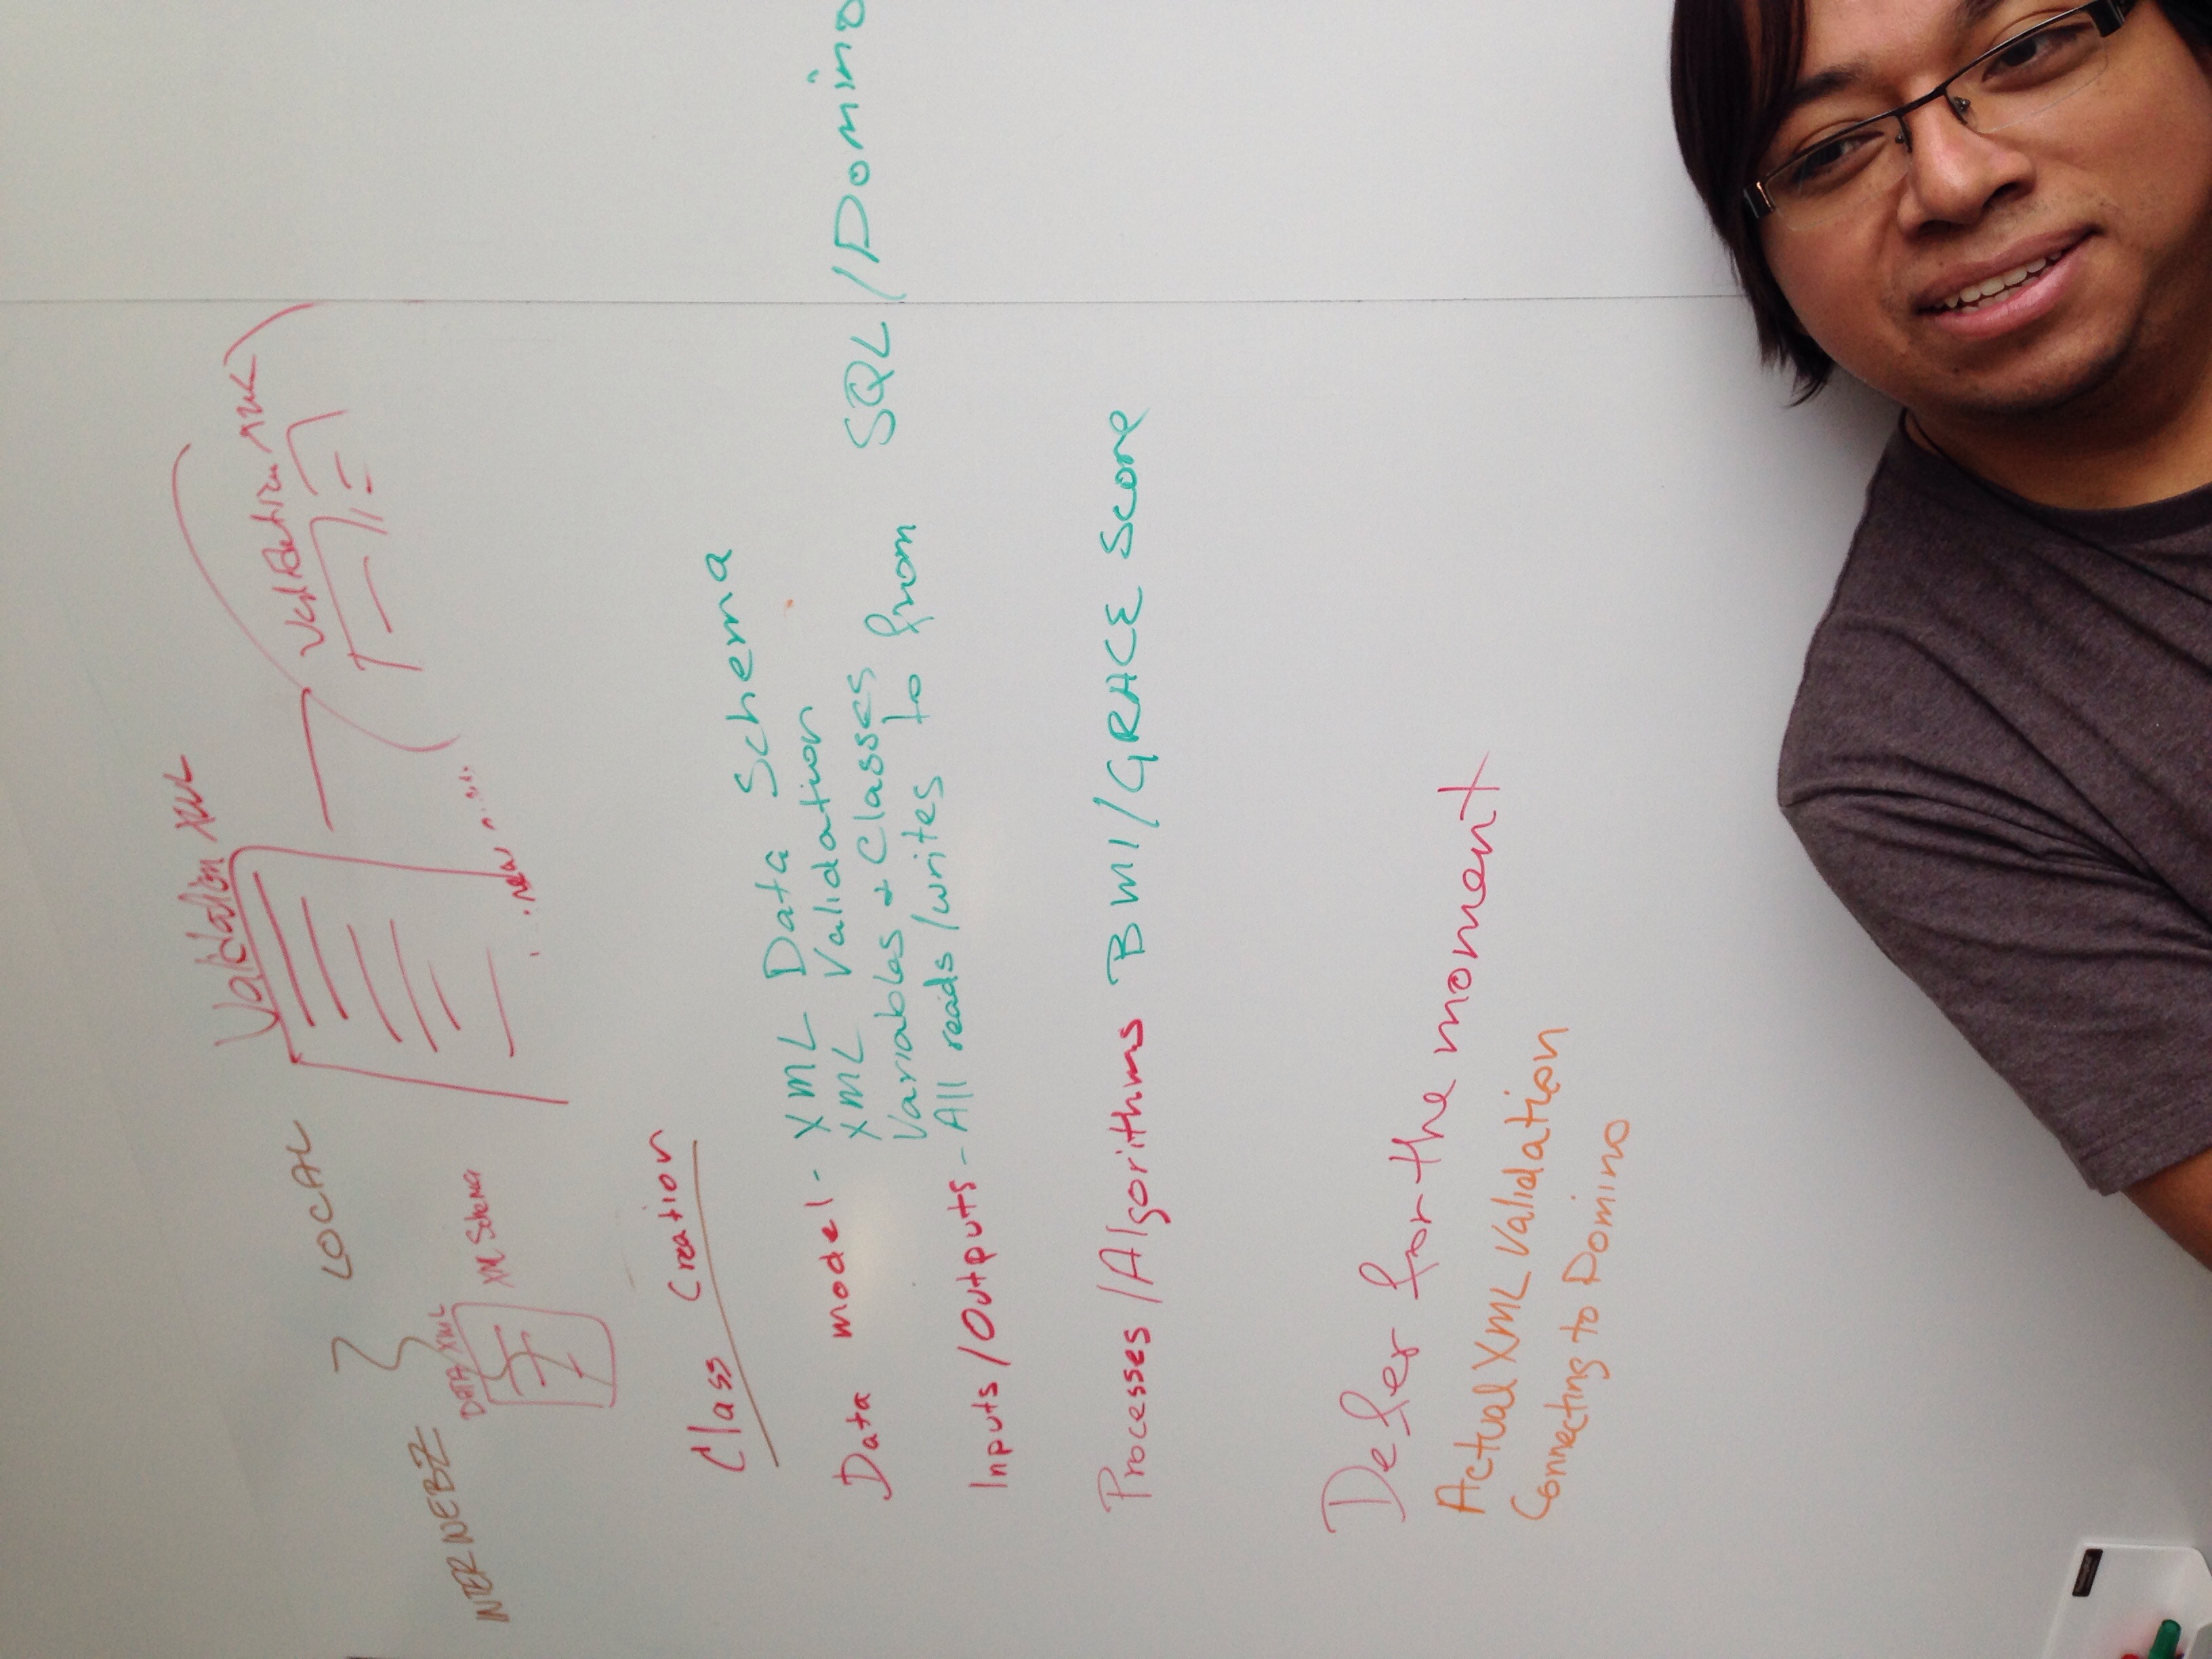 Validation XML
Validation XML
LOCAL
INTERWEBZ
DATA XML
XML Schema
Class Creation
Data model - XML Data Schema
XML Validation
Variables + Classes
Inputs/Outputs - All reads/writes to from SQL/Domino
Processes/Algorithms BMI/GRACE Score
Defer for the moment
Actual XML Validation
Connecting to Domino